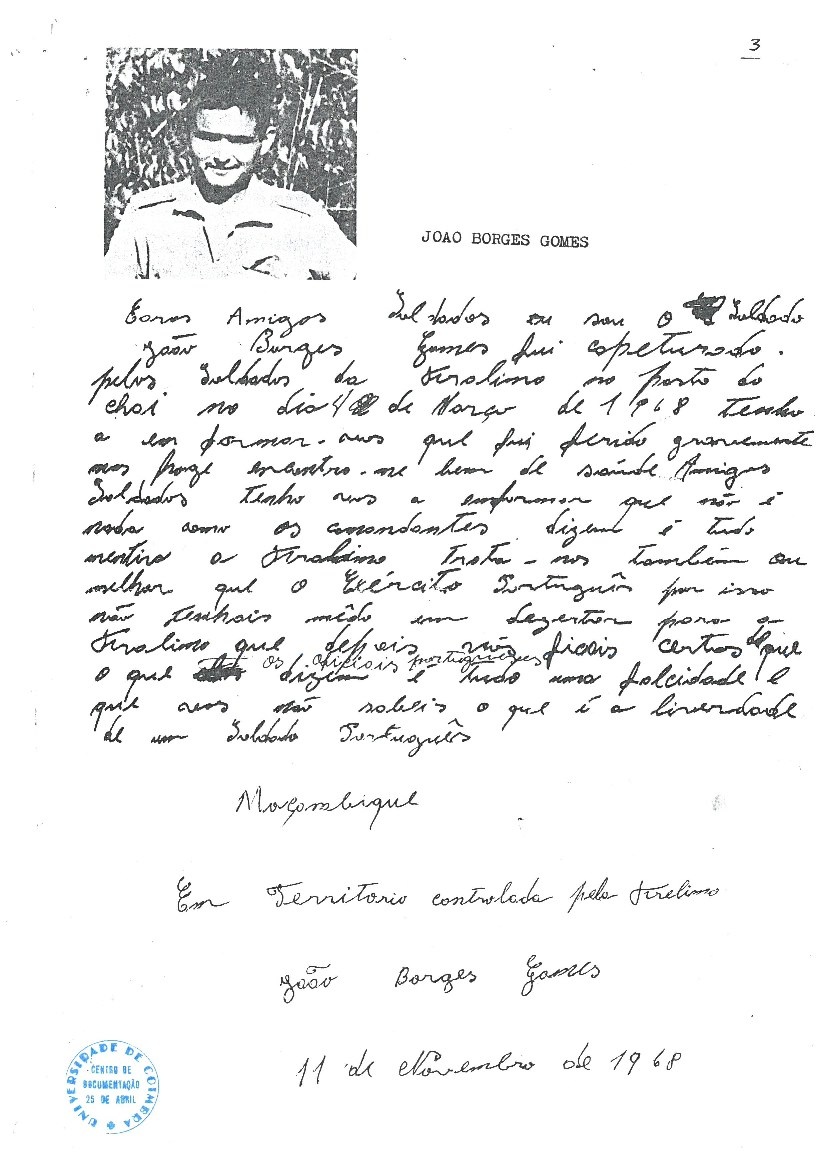 3
JOAO BORGES GOMES
Caros Amigos Soldados eu sou o Soldado
João Borges Gomes fui copeturado.
pelos Soldados da Firalimo no posto do
Chai no dia 4 de Março de 1968 tenho
a em formar-vos que fui ferido gravemente
mas hoge encontro-me bem de saúde Amigos
Soldados tenho vos a emformar que não é
nada como os comandantes dizem é tudo
mentira a Firalimo trata-nos também ou
melhor que o Exército Português por isso
não tenhais mêdo em dezertar para a
Firalimo que depois não ficais certos de que
o que os oficiais portugueses dizem é tudo uma falcidade e
que vos não sabeis o que é a liverdade
de um Soldado Português
Moçambique
Em Territorio controlada pela Frelimo
João Borges Gomes
11 de Novembro de 1968
UNIVERSIDADE DE COIMBRA
CENTRO DE
DOCUMENTAÇÃO
25 DE ABRIL